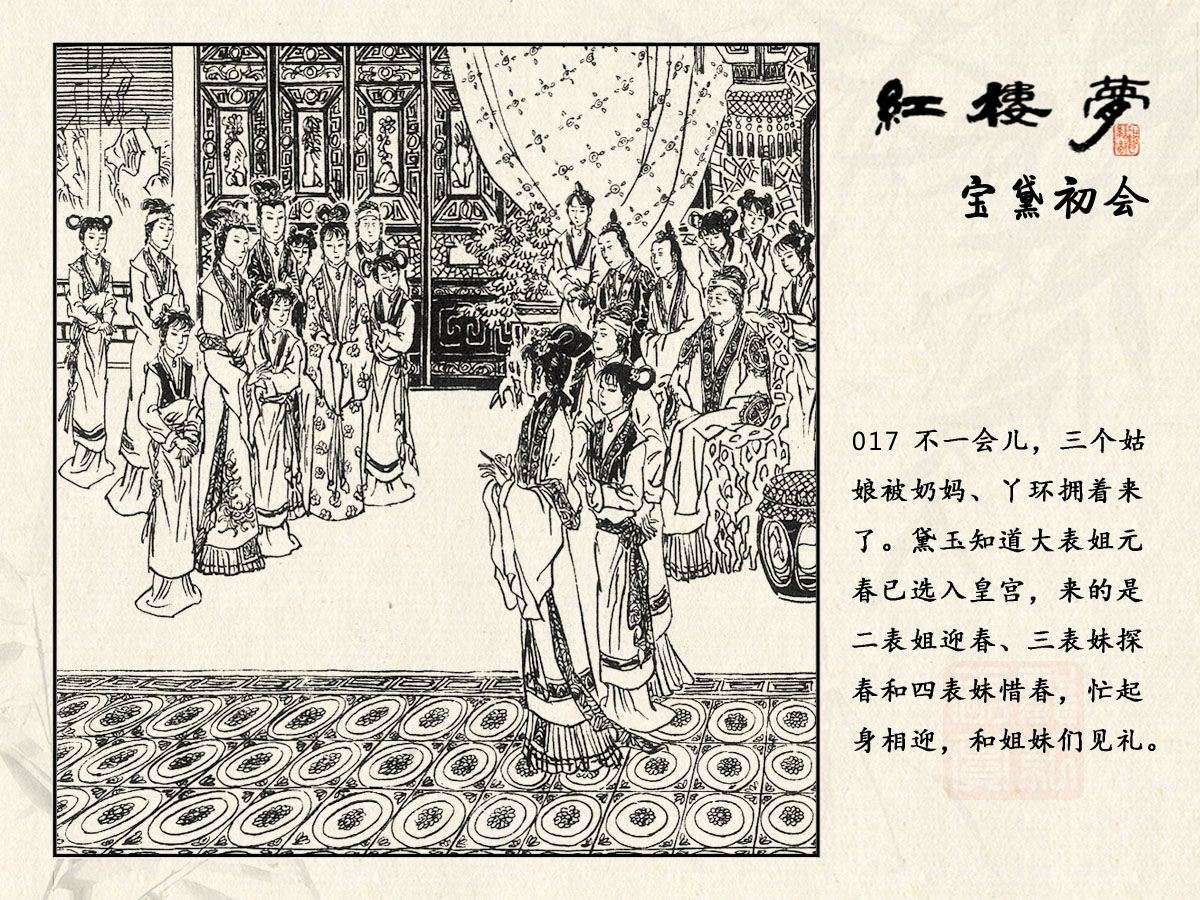 紅樓夢
宝黛初会
017 不一会儿，三个姑
娘被奶妈、丫环拥着来
了。黛玉知道大表姐元
春已选入皇宫，来的是
二表姐迎春、三表妹探
春和四表妹惜春，忙起
身相迎，和姐妹们见礼。